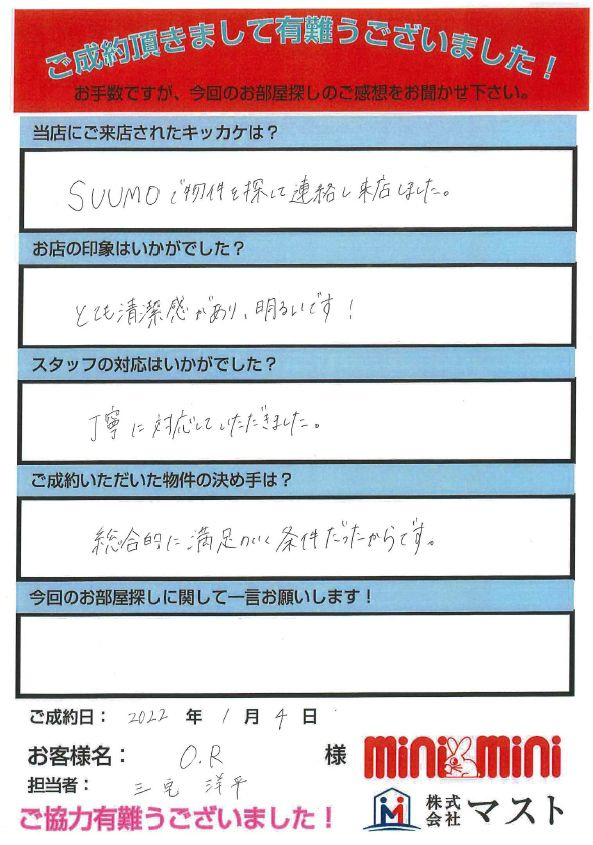 ご成約頂きまして有難うございました！
お手数ですが、今回のお部屋探しのご感想をお聞かせ下さい。
当店にご来店されたキッカケは？
SUUMOで物件を探して連絡し来店しました。
お店の印象はいかがでした？
とても清潔感があり、明るいです！
スタッフの対応はいかがでした？
丁寧に対応していただきました。
ご成約いただいた物件の決め手は？
総合的に満足のいく条件だったからです。
今回のお部屋探しに関して一言お願いします！
ご成約日： 2022 年 1 月 4 日
お客様名： O.R 様
担当者： 三宅 洋平
ご協力有難うございました！
mini mini
株式会社 マスト